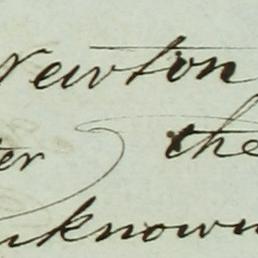 Newton
ter the
unknown